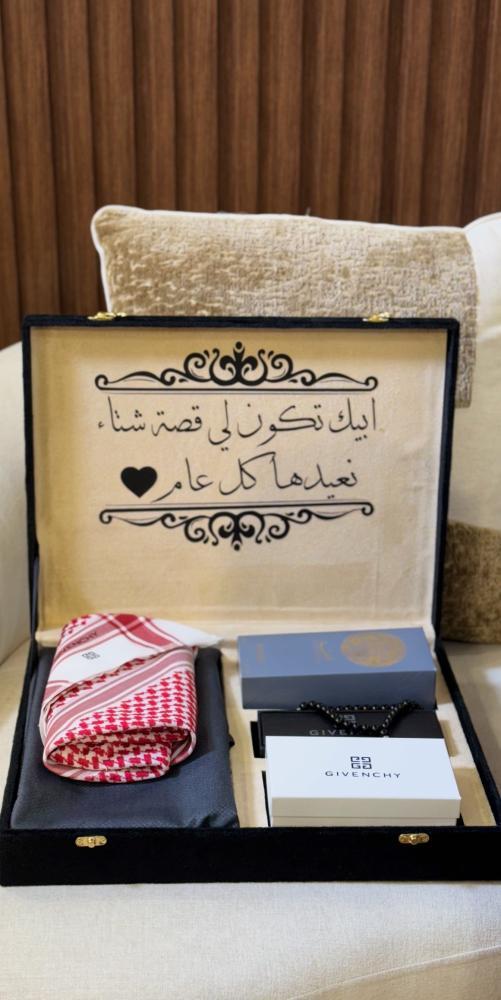 ابيك تكون لي قصة شتاء
نعيدها كل عام
GIVENCHY
GIVENCHY
GIVENCHY